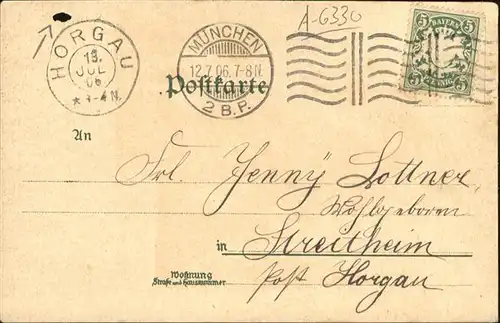 A-6330
HORGAU
13.
JUL
06
* 3-4 N.
MÜNCHEN
12.7.06. 7-8N.
2 B.P.
BAYERN
5 5
PFENNIG
5 5
Postkarte
An
Frl. Jenny Lottner,
Wohlgeboren
in Streitheim
Post Horgau
Wohnung
Straße und Hausnummer